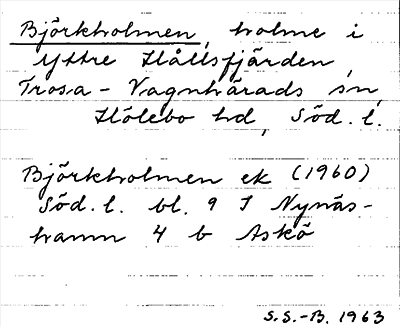 Björkholmen, holme i
yttre Hållsfjärden,
Trosa-Vagnhärads sn,
Hölebo hd, Söd. l.
Björkholmen ek (1960)
Söd. l. bl. 9 I Nynäs-
hamn 4 b Askö
S.S.-B. 1963